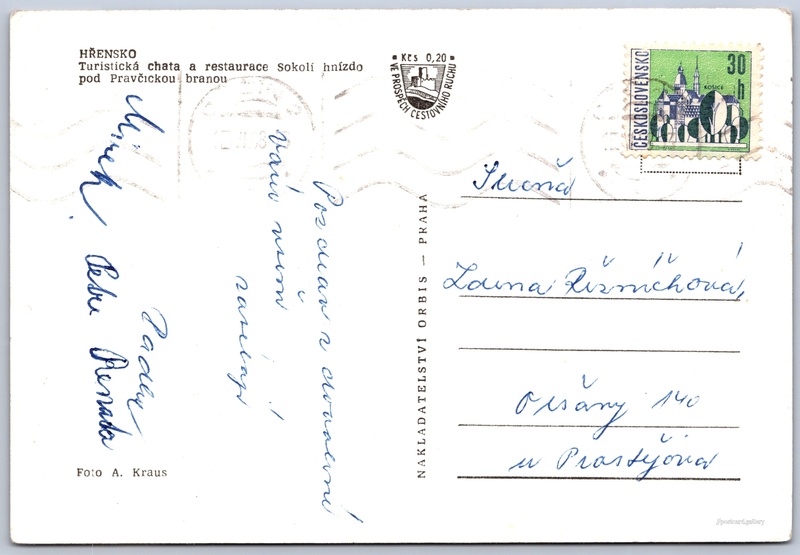 HŘENSKO
Turistická chata a restaurace Sokolí hnízdo
pod Pravčickou branou
Kčs 0,20
VE PROSPĚCH CESTOVNÍHO RUCHU
ČESKOSLOVENSKO
30
h
KOŠICE
Pozdrav z dovolené
Vám všem
Mirek
Petr Renata
Foto A. Kraus
NAKLADATELSTVÍ ORBIS — PRAHA
Zdena Řezníčková,
Olšany 140
u Prostějova